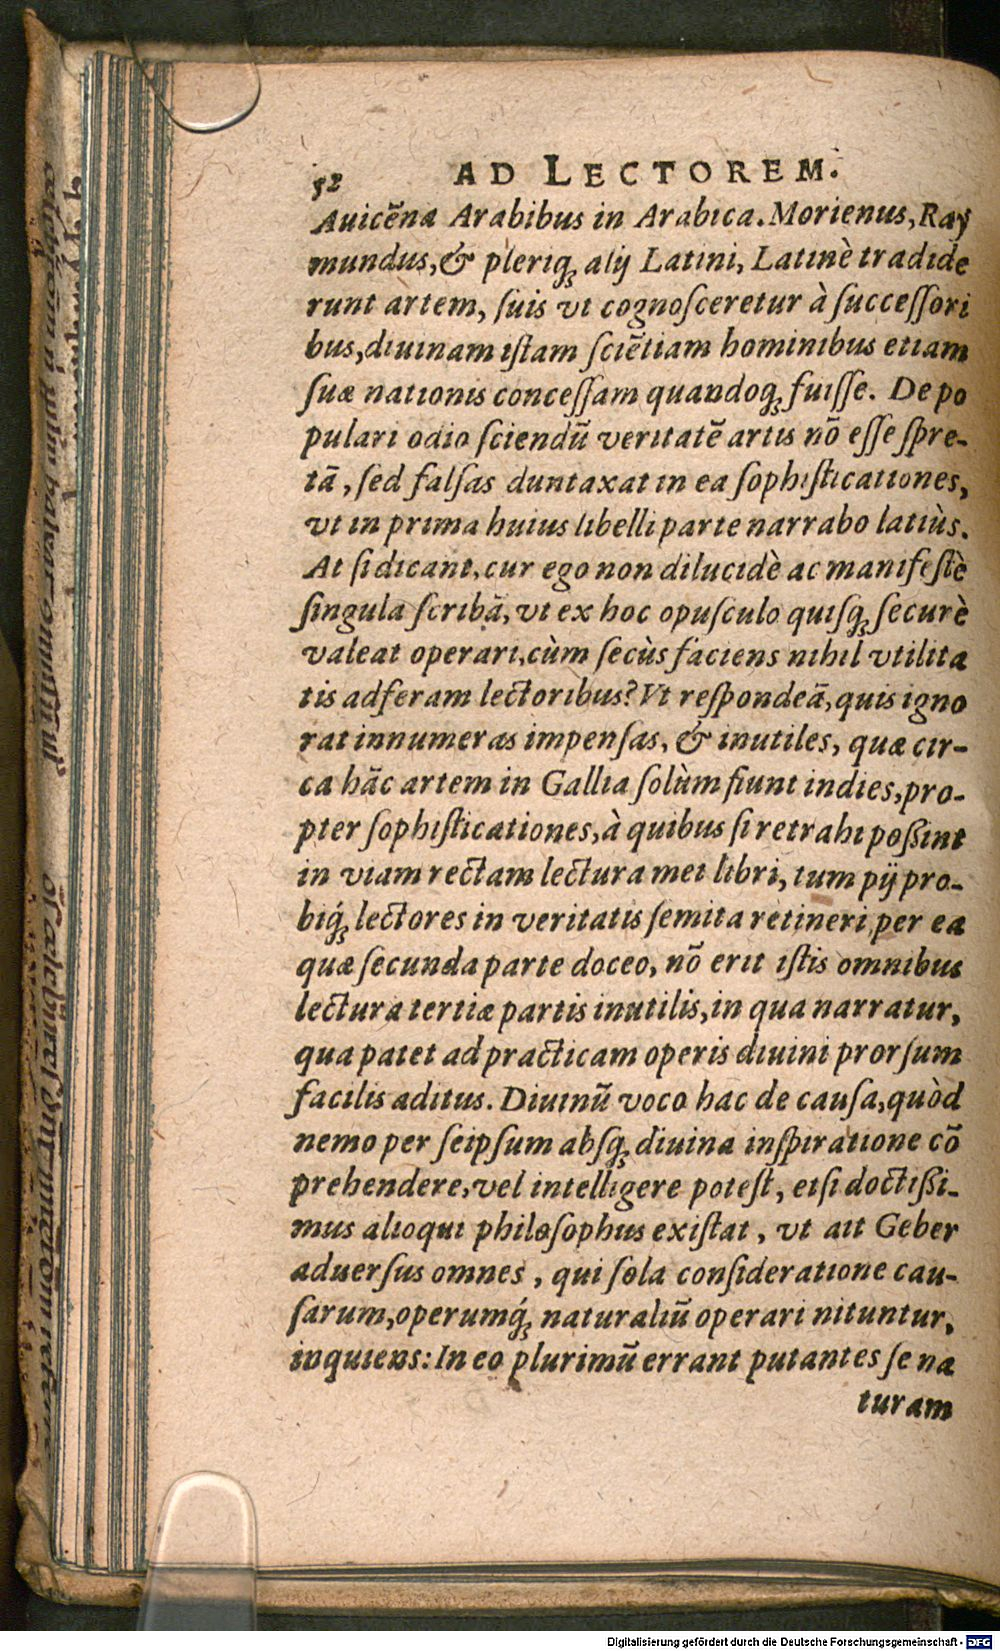 52 AD LECTOREM.
Auicēna Arabibus in Arabica. Morienus, Ray
mundus, & pleriq; alij Latini, Latinè tradide
runt artem, ſuis vt cognoſceretur à ſucceſſori
bus, diuinam iſtam ſciētiam hominibus etiam
ſuæ nationis conceſſam quandoq; fuiſſe. De po
pulari odio ſciendū veritatē artis nō eſſe ſpre-
tā, ſed falſas duntaxat in ea ſophiſticationes,
vt in prima huius libelli parte narrabo latiùs.
At ſi dicant, cur ego non dilucidè ac manifeſtè
ſingula ſcribā, vt ex hoc opuſculo quiſq; ſecurè
valeat operari, cùm ſecùs faciens nihil vtilita
tis adferam lectoribus? Vt reſpondeā, quis igno
rat innumeras impenſas, & inutiles, quæ cir-
ca hāc artem in Gallia ſolùm fiunt indies, pro-
pter ſophiſticationes, à quibus ſi retrahi poßint
in viam rectam lectura mei libri, tum pij pro-
biq́; lectores in veritatis ſemita retineri, per ea
quæ ſecunda parte doceo, nō erit iſtis omnibus
lectura tertiæ partis inutilis, in qua narratur,
qua patet ad practicam operis diuini prorſum
facilis aditus. Diuinū voco hac de cauſa, quòd
nemo per ſeipſum abſq; diuina inſpiratione cō
prehendere, vel intelligere poteſt, etſi doctißi-
mus alioqui philoſophus exiſtat, vt ait Geber
aduerſus omnes, qui ſola conſideratione cau-
ſarum, operumq́; naturaliū operari nituntur,
inquiens: In eo plurimū errant putantes ſe na
turam
Digitalisierung gefördert durch die Deutsche Forschungsgemeinschaft - DFG